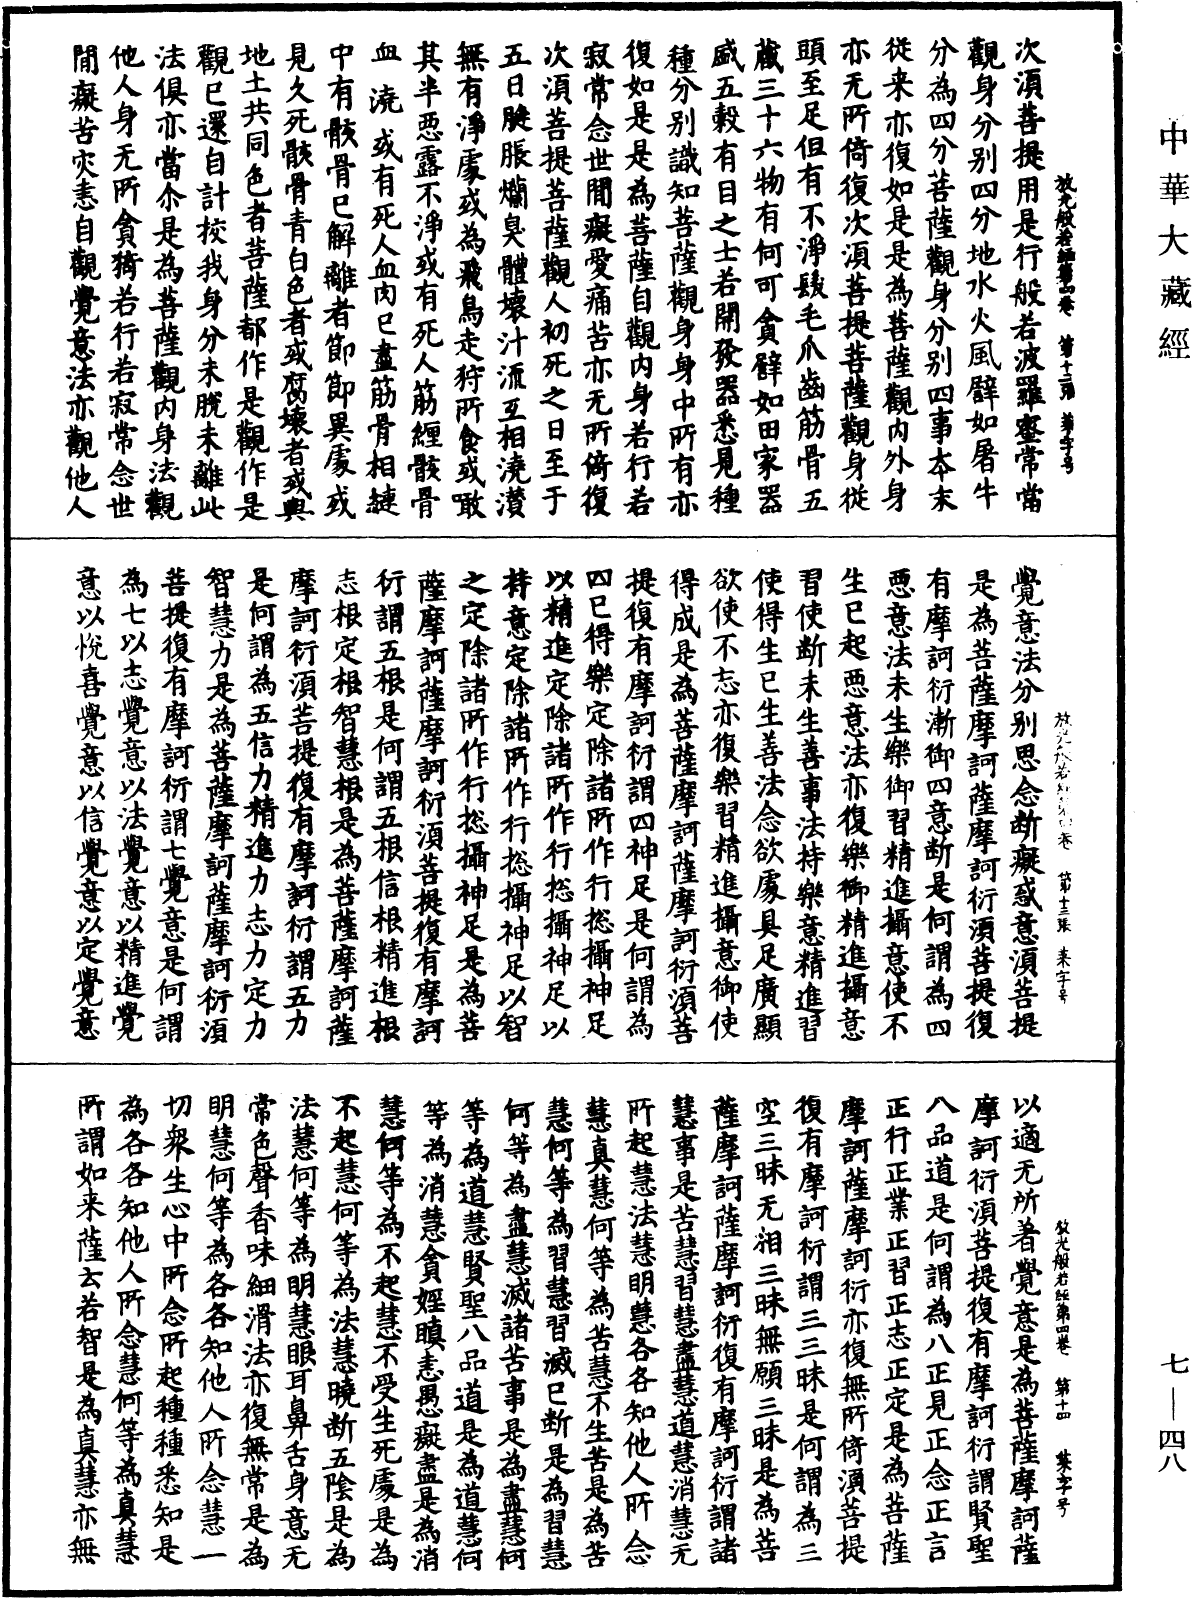 中華大藏經
次湏菩提用是行般若波羅蜜常當
觀身分别四分地水火風譬如屠牛
分為四分菩薩觀身分别四事本末
従来亦復如是是為菩薩觀内外身
亦无所倚復次湏菩提菩薩觀身従
頭至足但有不淨髮毛爪齒筋骨五
藏三十六物有何可貪譬如田家器
盛五穀有目之士若開發器悉見種
種分别識知菩薩觀身身中所有亦
復如是是為菩薩自觀内身若行若
寂常念世間癡愛痛苦亦无所倚復
次湏菩提菩薩觀人初死之日至于
五日膖脹爛臭體壞汁流互相澆灒
無有淨處或為飛鳥走狩所食或噉
其半惡露不淨或有死人筋纒骸骨
血澆或有死人血肉已盡筋骨相縺
中有骸骨已解離者節節異處或
見久死骸骨青白色者或腐壞者或與
地土共同色者菩薩都作是觀作是
觀已還自計挍我身分未脱未離此
法俱亦當尒是為菩薩觀内身法觀
他人身无所貪猗若行若寂常念世
間癡苦灾恚自觀覺意法亦觀他人
放光般若經第四卷 第十二張 菜字号
覺意法分别思念断癡惑意湏菩提
是為菩薩摩訶薩摩訶衍湏菩提復
有摩訶衍漸御四意断是何謂為四
惡意法未生樂御習精進攝意使不
生已起惡意法亦復樂御精進攝意
習使断未生善事法持樂意精進習
使得生已生善法念欲處具足廣顯
欲使不忘亦復樂習精進攝意御使
得成是為菩薩摩訶薩摩訶衍湏菩
提復有摩訶衍謂四神足是何謂為
四已得樂定除諸所作行揔攝神足
以精進定除諸所作行揔攝神足以
持意定除諸所作行揔攝神足以智
之定除諸所作行揔攝神足是為菩
薩摩訶薩摩訶衍湏菩提復有摩訶
衍謂五根是何謂五根信根精進根
志根定根智慧根是為菩薩摩訶薩
摩訶衍湏菩提復有摩訶衍謂五力
是何謂為五信力精進力志力定力
智慧力是為菩薩摩訶薩摩訶衍湏
菩提復有摩訶衍謂七覺意是何謂
為七以志覺意以法覺意以精進覺
意以悅喜覺意以信覺意以定覺意
卷 第十三張 菜字号
以適无所着覺意是為菩薩摩訶薩
摩訶衍湏菩提復有摩訶衍謂賢聖
八品道是何謂為八正見正念正言
正行正業正習正志正定是為菩薩
摩訶薩摩訶衍亦復無所倚湏菩提
復有摩訶衍謂三三昧是何謂為三
空三昧无相三昧無願三昧是為菩
薩摩訶薩摩訶衍復有摩訶衍謂諸
慧事是苦慧習慧盡慧道慧消慧无
所起慧法慧明慧各各知他人所念
慧真慧何等為苦慧不生苦是為苦
慧何等為習慧習滅已断是為習慧
何等為盡慧滅諸苦事是為盡慧何
等為道慧賢聖八品道是為道慧何
等為消慧貪婬瞋恚愚癡盡是為消
慧何等為不起慧不受生死處是為
不起慧何等為法慧曉断五陰是為
法慧何等為明慧眼耳鼻舌身意无
常色聲香味細滑法亦復無常是為
明慧何等為各各知他人所念慧一
切衆生心中所念所起種種悉知是
為各各知他人所念慧何等為真慧
所謂如来薩云若智是為真慧亦無
放光般若經第四卷 第十四 菜字号
七—四八